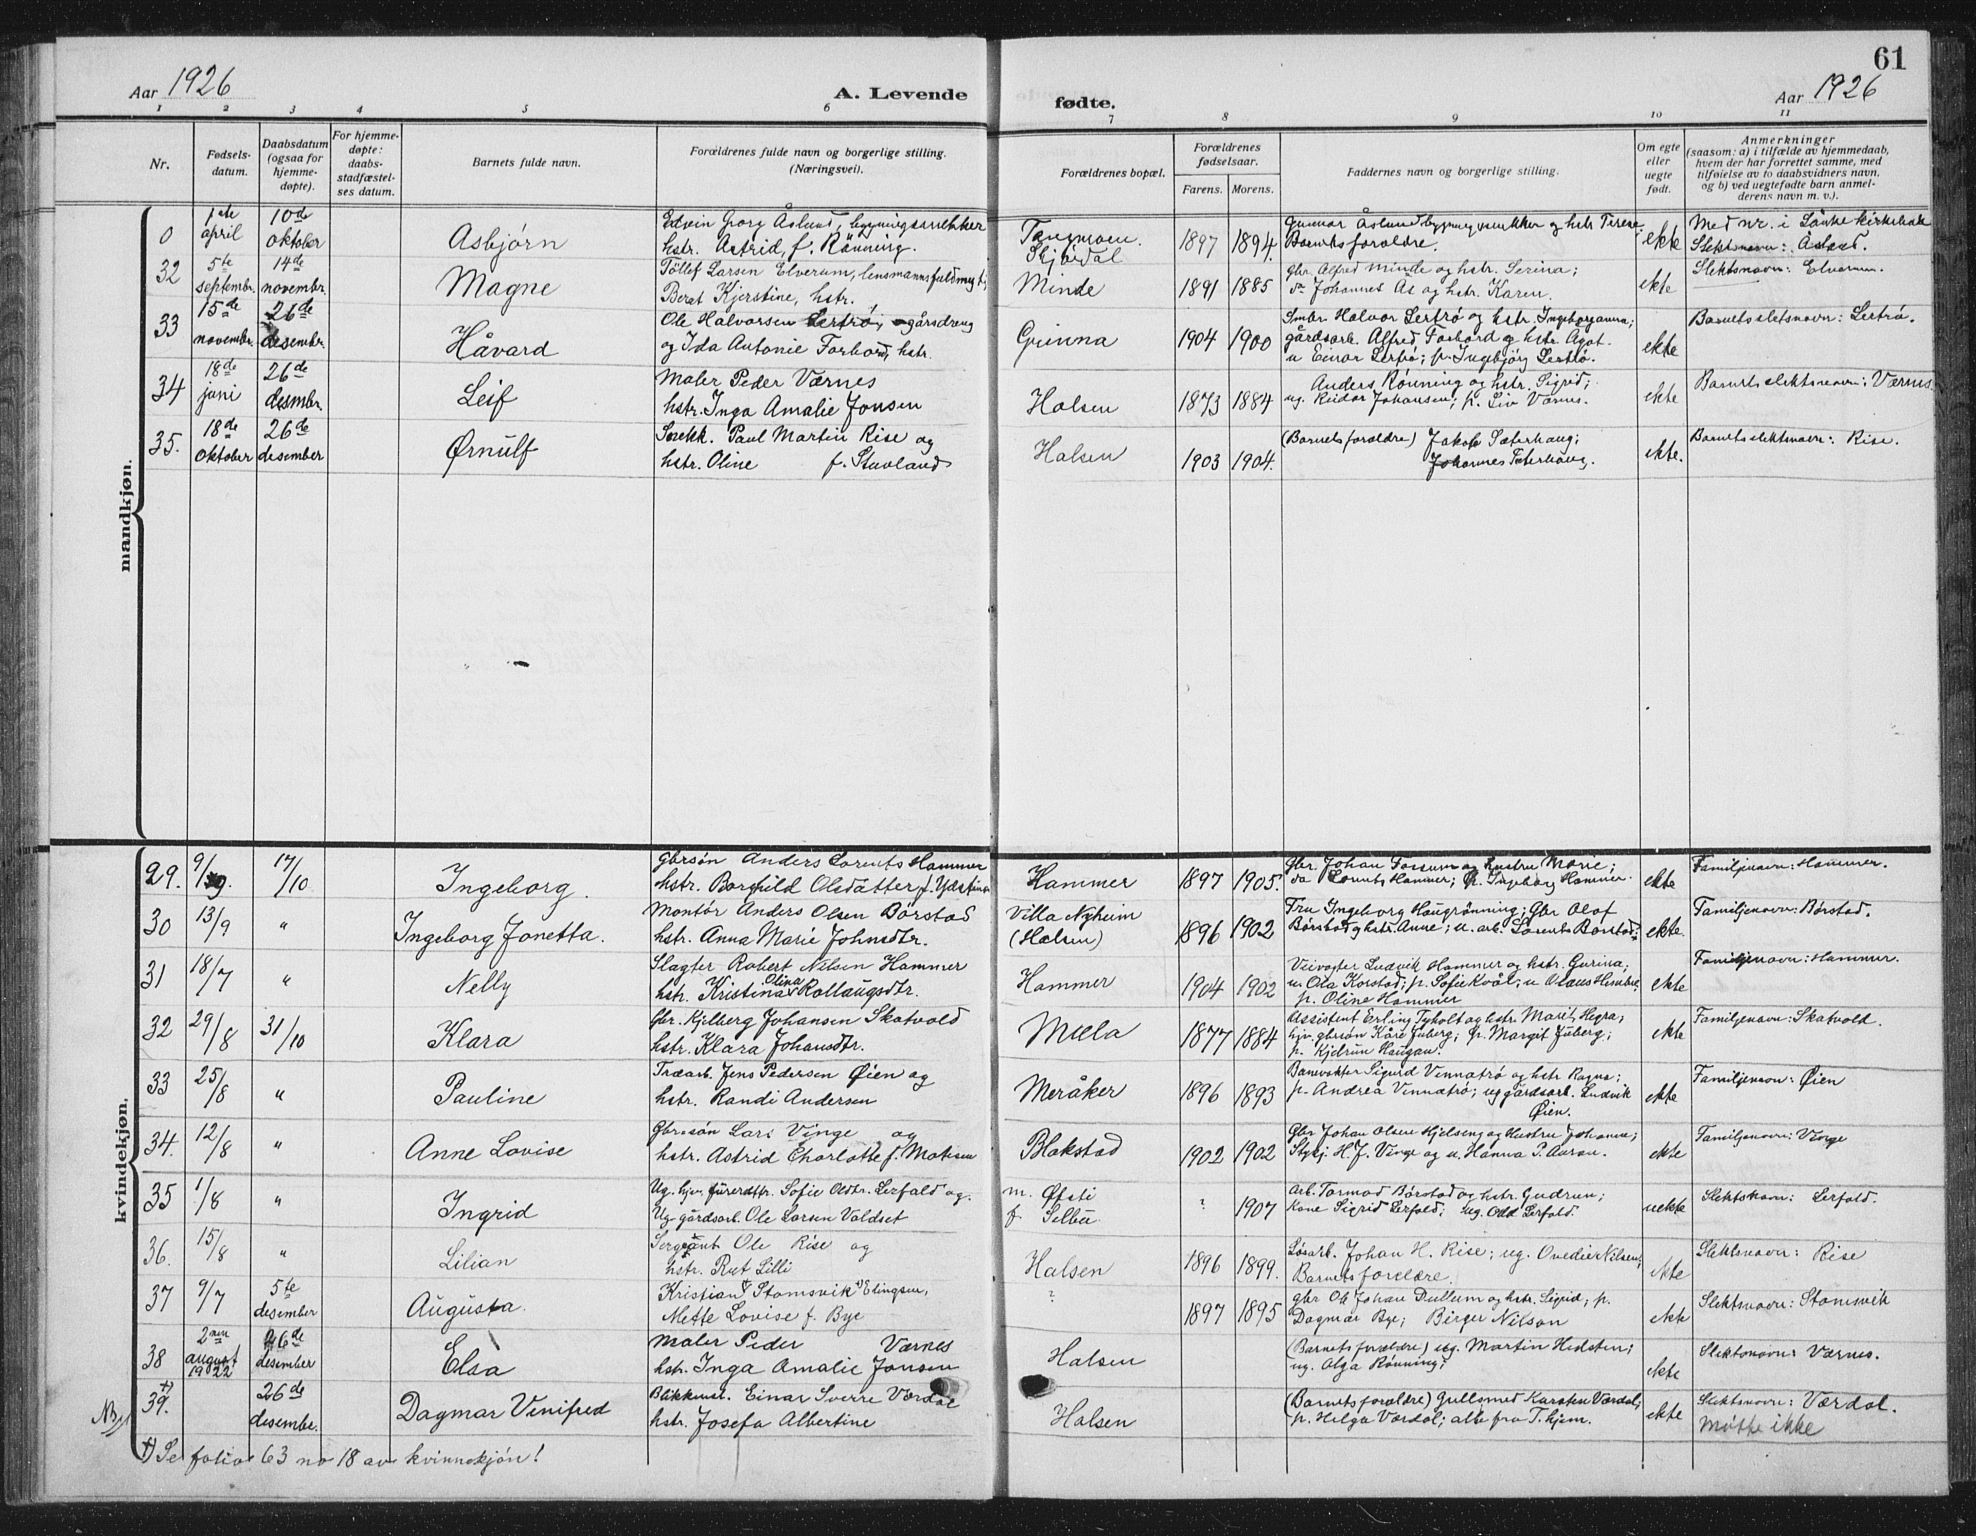 61
Aar 1926
A. Levende
fødte.
Aar 1926
1 2 3 4 5 6 7 8 9 10 11
Nr.
Fødsels-
datum.
Daabsdatum
(ogsaa for
hjemme-
døpte).
For hjemme-
døpte:
daabs-
stadfæstel-
ses datum.
Barnets fulde navn.
Forældrenes fulde navn og borgerlige stilling.
(Næringsvei).
Forældrenes bopæl.
Forældrenes
fødselsaar.
Farens. Morens.
Faddernes navn og borgerlige stilling.
Om egte
eller
uegte
født.
Anmerkninger
(saasom: a) i tilfælde av hjemmedaab,
hvem der har forrettet samme, med
tilføielse av to daabsvidners navn,
og b) ved uegtefødte barn anmel-
derens navn m. v.).
mandkjøn.
0 1ste april 10de oktober Asbjørn
Edvin Georg Åslund, bygningssnekker
hstr. Astrid, f. Rønning.
Tangmoen
Skjøldal
1897 1894.
Barnets foreldre. ekte
Med nr. i Lånke kirkebok
32 5te septembr. 14de novembr. Magne
Tollef Larsen Elverum, lensmannsfuldmegt.
Beret Kjerstine, hstr.
Minde 1891 1885
gbr. Alfred Minde og hstr. Serina;
Johannes Ås og hstr. Karen. ekte
Slektsnavn: Elverum.
33 15de novembr. 26de desembr. Håvard
Ole Halvorsen Lertrø, gårsdreng
og Ida Antonie Forbord, hstr.
Grinna 1904 1900
Smbr Halvor Lertrø og hstr. Ingeborganna;
gårdsarb. Alfred Forbord og hstr Agot.
u Einar Lertrø; p. Ingebjørg Lertrø. ekte
Barnets sletsnavn: Lertrø.
34 18de juni 26de desmbr. Leif
Maler Peder Værnes
hstr. Inga Amalie Jonsen
Halsen 1873 1884
Anders Rønning og hstr. Sigrid;
ug. Reidar Johansen; p. Liv Værnes. ekte
Barnets slektsnavn: Værnes
35. 18de oktober 26de desember Ørnulf
Snekk. Paul Martin Rise og
hstr. Oline f. Stavland
Halsen 1903 1904.
(Barnets foreldre) Jakob Sæterhaug;
Johannes Sæterhaug. ekte.
Barnets slektsnavn: Rise.
kvindekjøn.
29. 9/9. 17/10 Ingeborg.
gbrsøn Anders Lorents Hammer
hstr. Borghild Olsdatter f. Ydstines
Hammer 1897 1905.
gbr. Johan Fossum og hustru Marie;
Lorents Hammer; p. Ingeborg Hammer. ekte
Familjenavn: Hammer.
30 13/9 " Ingeborg Jonetta.
Montør Anders Olsen Børstad
hstr. Anna Marie Johnsdtr.
Villa Nyheim
(Halsen)
1896 1902
Fru Ingeborg Haugrønning; Gbr Olaf
Børstad og hstr. Anne; u. arb. Lorents Børstad. ekte.
Familjenavn: Børstad.
31 18/7 " Nelly
Slagter Robert Nilsen Hammer
hstr. Kristina Olina Rollaugsdtr.
Hammer 1904 1902
Veivogter Ludvik Hammer og hstr. Gurina;
u Ola Korstad; p. Sofie Kvål; u Olaus
p. Oline Hammer ekte
Familjenavn: Hammer.
32 29/8 31/10 Klara
Gbr. Kjelberg Johansen Skatvold
hstr. Klara Johansdtr.
Mæla 1877 1884
Assistent Erling Tyholt og hstr Marit Hegra;
hjv. gbrsøn Kåre Juberg; p. Margit Juberg;
p. Kjelrun Haugan. ekte
Familjenavn: Skatvold.
33 25/8 " Pauline
Træarb. Jens Pedersen Øien og
hstr. Randi Andersen
Meråker 1896 1893
Banevokter Sigurd Vinnatrø og hstr Ragna;
p. Andrea Vinnatrø; ug gårdsarb. Ludvik
Øien. ekte
Familjenavn: Øien
34. 12/8 " Anne Lovise
Gbr.søn Lars Vinge og
hstr. Astrid Charlotte f. Matsen
Blokstad 1902 1902
Gbr Johan Olsen Hjelseng og Hustru Johanna;
H. J. Vinge og u. Hanna P. Aaron. ekte
Familjenavn: Vinge
35 1/8 " Ingrid
Ug. hjv. gurerdttr. Sofie Oldtr. Lerfald og
Ug gårdsarb. Ole Larsen Valdset
m. Øfsti
f. Selbu
? 1907
Arb. Tormod Børstad og hstr. Gudrun;
Kone Sigrid Lerfald; ug. Odd Lerfald. uekte
Slektsnavn: Lerfald.
36. 15/8 " Lilian
Sergeant Ole Rise og
hstr. Rut Lilli
Halsen 1896 1899.
Løsarb. Johan H. Rise; ug. Ovedie Nilsen;
Barnets forelære. ekte
Slektsnavn: Rise
37 9/7 5te desember Augusta.
Kristian Stamsvik Elingsen,
Mette Lovise f. Bye
? 1897 1895
gbr Ole Johan Dullum og hstr. Sigrid; p.
Dagmar Bye; Birger Nilson ekte
Slektsnavn: Stamsvik
38 2nen august 1922 26de desember Elsa
Maler Peder Værnes
hstr. Inga Amalie Jonsen
Halsen
(Barnets forældre) ug. Martin Hilsten;
ug. Olga Rønning; ekte
Slektsnavn: Værnes.
NB 39. +) 26de desembe. Dagmar Venifred
Blikkensl. Einar Sverre Værdal
hstr. Josefa Albertine
Halsen
(Barnets foreldre) Gullsmed Karsten Værdal;
p. Helga Værdal; alle fra T.hjem. ekte
Slektsnavn: Værdal.
Møtte ikke
+) Se folio 63 no 18 av kvinnekjøn!